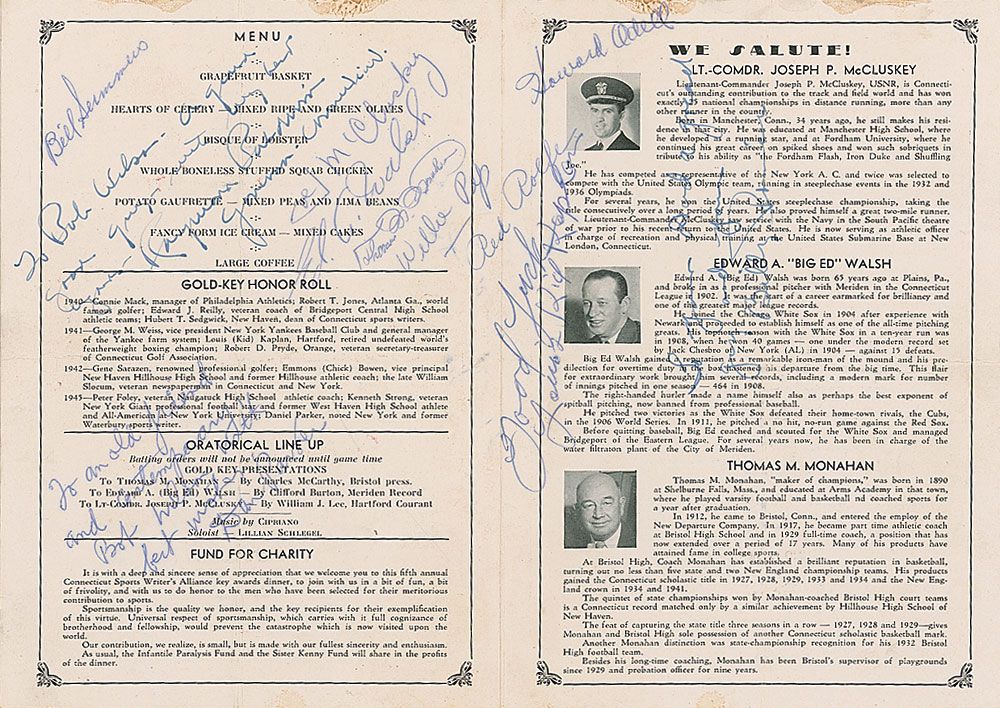 MENU
GRAPEFRUIT BASKET
HEARTS OF CELERY — MIXED RIPE AND GREEN OLIVES
BISQUE OF LOBSTER
WHOLE BONELESS STUFFED SQUAB CHICKEN
POTATO GAUFRETTE — MIXED PEAS AND LIMA BEANS
FANCY FORM ICE CREAM — MIXED CAKES
LARGE COFFEE
Bill Summers
To Bob Wilson
Willie Pep
GOLD-KEY HONOR ROLL
1940—Connie Mack, manager of Philadelphia Athletics; Robert T. Jones, Atlanta Ga., world
famous golfer; Edward J. Reilly, veteran coach of Bridgeport Central High School
athletic teams; Hubert T. Sedgwick, New Haven, dean of Connecticut sports writers.
1941—George M. Weiss, vice president New York Yankees Baseball Club and general manager
of the Yankee farm system; Louis (Kid) Kaplan, Hartford, retired undefeated world's
featherweight boxing champion; Robert D. Pryde, Orange, veteran secretary-treasurer
of Connecticut Golf Association.
1942—Gene Sarazen, renowned professional golfer; Emmons (Chick) Bowen, vice principal
New Haven Hillhouse High School and former Hillhouse athletic coach; the late William
Slocum, veteran newspaperman in Connecticut and New York.
1943—Peter Foley, veteran Naugatuck High School athletic coach; Kenneth Strong, veteran
New York Giant professional football and former West Haven High School athlete
and All-American at New York University; Daniel Parker, noted New York and former
Waterbury sports writer.
ORATORICAL LINE UP
Batting orders will not be announced until game time
GOLD KEY PRESENTATIONS
To THOMAS M. MONAHAN — By Charles McCarthy, Bristol press.
To EDWARD A. (Big Ed) WALSH — By Clifford Burton, Meriden Record
To LT-COMDR. JOSEPH P. McCLUSKEY — By William J. Lee, Hartford Courant
Music by CIPRIANO
Soloist — LILLIAN SCHLEGEL
To an old friend
FUND FOR CHARITY
It is with a deep and sincere sense of appreciation that we welcome you to this fifth annual
Connecticut Sports Writer's Alliance key awards dinner, to join with us in a bit of fun, a bit
of frivolity, and with us to do honor to the men who have been selected for their meritorious
contribution to sports.
Sportsmanship is the quality we honor, and the key recipients for their exemplification
of this virtue. Universal respect of sportsmanship, which carries with it full cognizance of
brotherhood and fellowship, would prevent the catastrophe which is now visited upon the
world.
Our contribution, we realize, is small, but is made with our fullest sincerity and enthusiasm.
As usual, the Infantile Paralysis Fund and the Sister Kenny Fund will share in the profits
of the dinner.
Howard Odell
WE SALUTE!
LT.-COMDR. JOSEPH P. McCLUSKEY
Lieutenant-Commander Joseph P. McCluskey, USNR, is Connecti-
cut's outstanding contribution to the track and field world and has won
exactly 25 national championships in distance running, more than any
other runner in the county.
Born in Manchester, Conn., 34 years ago, he still makes his resi-
dence in that city. He was educated at Manchester High School, where
he developed as a running star, and at Fordham University, where he
continued his great career on spiked shoes and won such sobriquets in
tribute to his ability as "the Fordham Flash, Iron Duke and Shuffling
Joe."
He has competed as representative of the New York A. C. and twice was selected to
compete with the United States Olympic team, running in steeplechase events in the 1932 and
1936 Olympiads.
For several years, he won the United States steeplechase championship, taking the
title consecutively over a long period of years. He also proved himself a great two-mile runner.
Lieutenant-Commander McCluskey saw service with the Navy in the South Pacific theatre
of war prior to his recent return to the United States. He is now serving as athletic officer
in charge of recreation and physical training at the United States Submarine Base at New
London, Connecticut.
Red Rolfe
Good Luck
EDWARD A. "BIG ED" WALSH
Edward A. (Big Ed) Walsh was born 65 years ago at Plains, Pa.,
and broke in as a professional pitcher with Meriden in the Connecticut
League in 1902. It was the start of a career earmarked for brilliancy and
one of the greatest major league records.
He joined the Chicago White Sox in 1904 after experience with
Newark and proceeded to establish himself as one of the all-time pitching
greats. His topnotch season with the White Sox in a ten-year run was
in 1908, when he won 40 games — one under the modern record set
by Jack Chesbro of New York (AL) in 1904 — against 15 defeats.
Big Ed Walsh gained a reputation as a remarkable iron-man of the mound and his pre-
dilection for overtime duty in the box hastened his departure from the big time. This flair
for extraordinary work brought him several records, including a modern mark for number
of innings pitched in one season — 464 in 1908.
The right-handed hurler made a name himself also as perhaps the best exponent of
spitball pitching, now banned from professional baseball.
He pitched two victories as the White Sox defeated their home-town rivals, the Cubs,
in the 1906 World Series. In 1911, he pitched a no hit, no-run game against the Red Sox.
Before quitting baseball, Big Ed coached and scouted for the White Sox and managed
Bridgeport of the Eastern League. For several years now, he has been in charge of the
water filtraton plant of the City of Meriden.
THOMAS M. MONAHAN
Thomas M. Monahan, "maker of champions," was born in 1890
at Shelburne Falls, Mass., and educated at Arms Academy in that town,
where he played varsity football and basketball nd coached sports for
a year after graduation.
In 1912, he came to Bristol, Conn., and entered the employ of the
New Departure Company. In 1917, he became part time athletic coach
at Bristol High School and in 1929 full-time coach, a position that has
now extended over a period of 17 years. Many of his products have
attained fame in college sports.
At Bristol High, Coach Monahan has established a brilliant reputation in basketball,
turning out no less than five state and two New England championship teams. His products
gained the Connecticut scholastic title in 1927, 1928, 1929, 1933 and 1934 and the New Eng-
land crown in 1934 and 1941.
The quintet of state championships won by Monahan-coached Bristol High court teams
is a Connecticut record matched only by a similar achievement by Hillhouse High School of
New Haven.
The feat of capturing the state title three seasons in a row — 1927, 1928 and 1929—gives
Monahan and Bristol High sole possession of another Connecticut scholastic basketball mark.
Another Monahan distinction was state-championship recognition for his 1932 Bristol
High football team.
Besides his long-time coaching, Monahan has been Bristol's supervisor of playgrounds
since 1929 and probation officer for nine years.